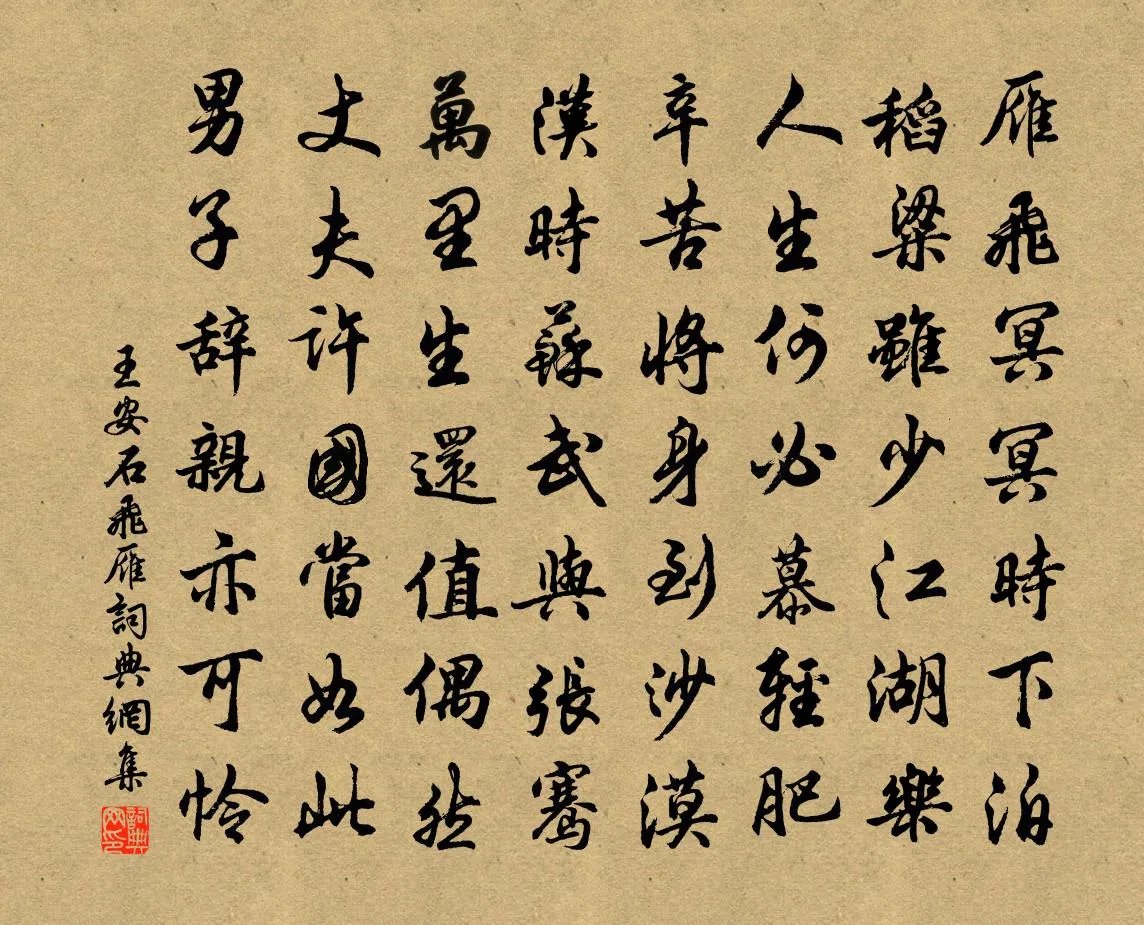 雁飛冥冥時下泊
稻粱雖少江湖樂
人生何必慕輕肥
辛苦將身到沙漠
漢時蘇武與張騫
萬里生還值偶然
丈夫許國當如此
男子辞親亦可怜
王安石飛雁詞典網集
詞典网印